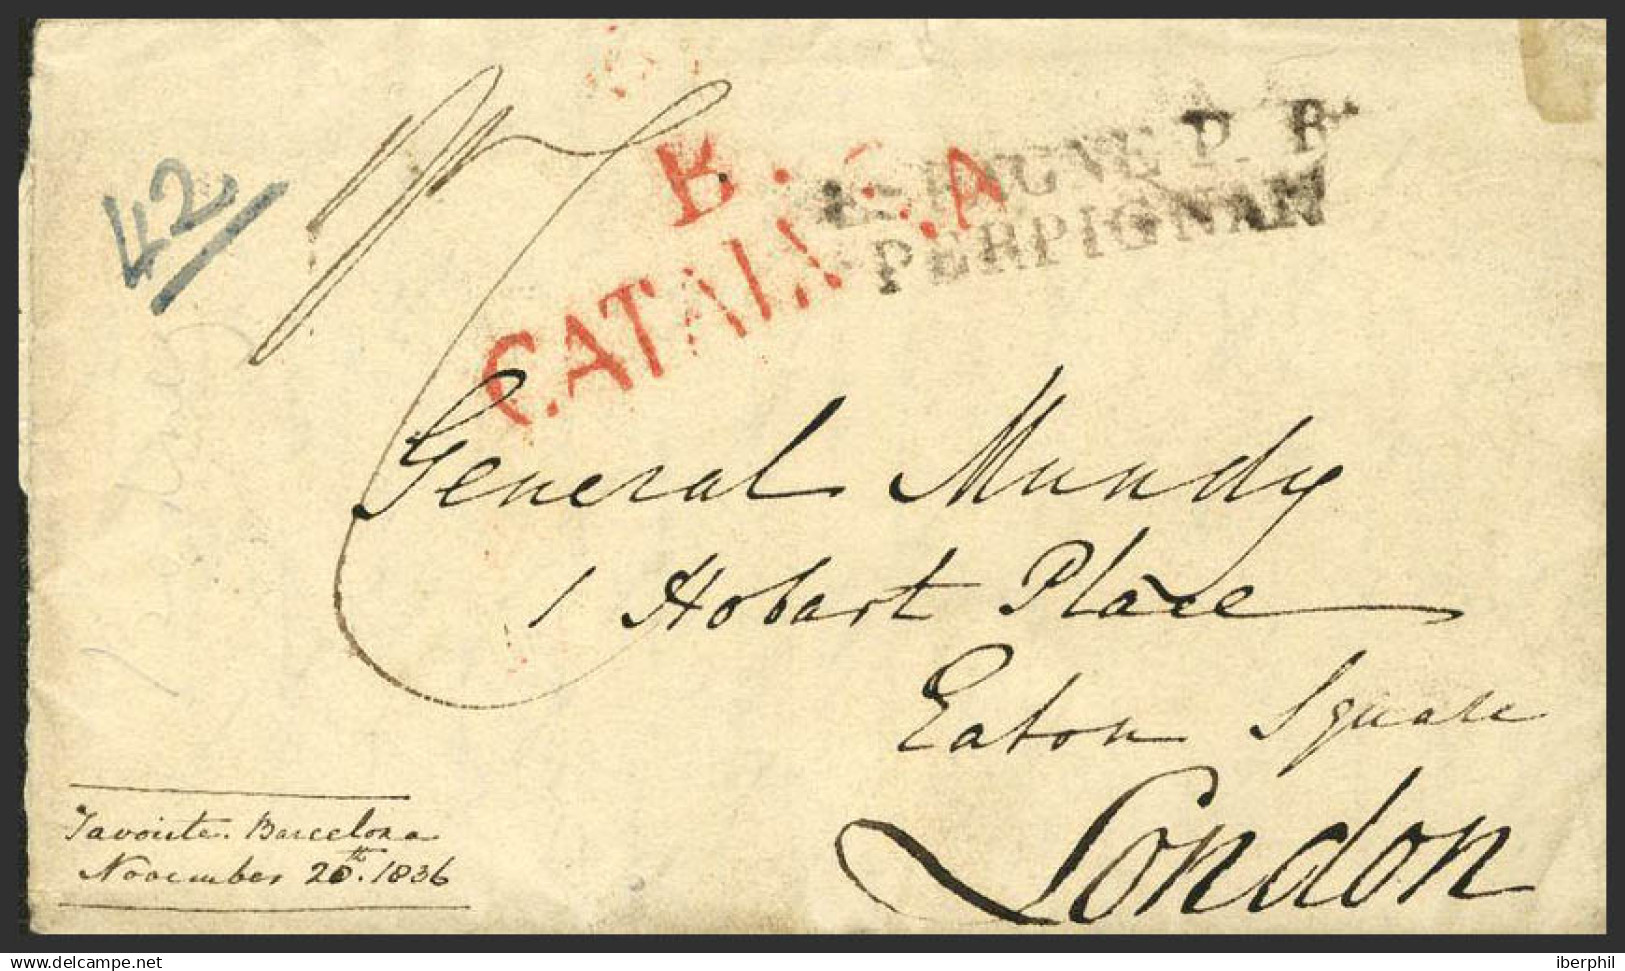 42
B.
CATALUÑA
ESPAGNE P. R.
PERPIGNAN
General Mundy
1 Hobart Place
Eaton Square
London
Favorite. Barcelona
November 20th. 1836
delcampe.net
iberphil